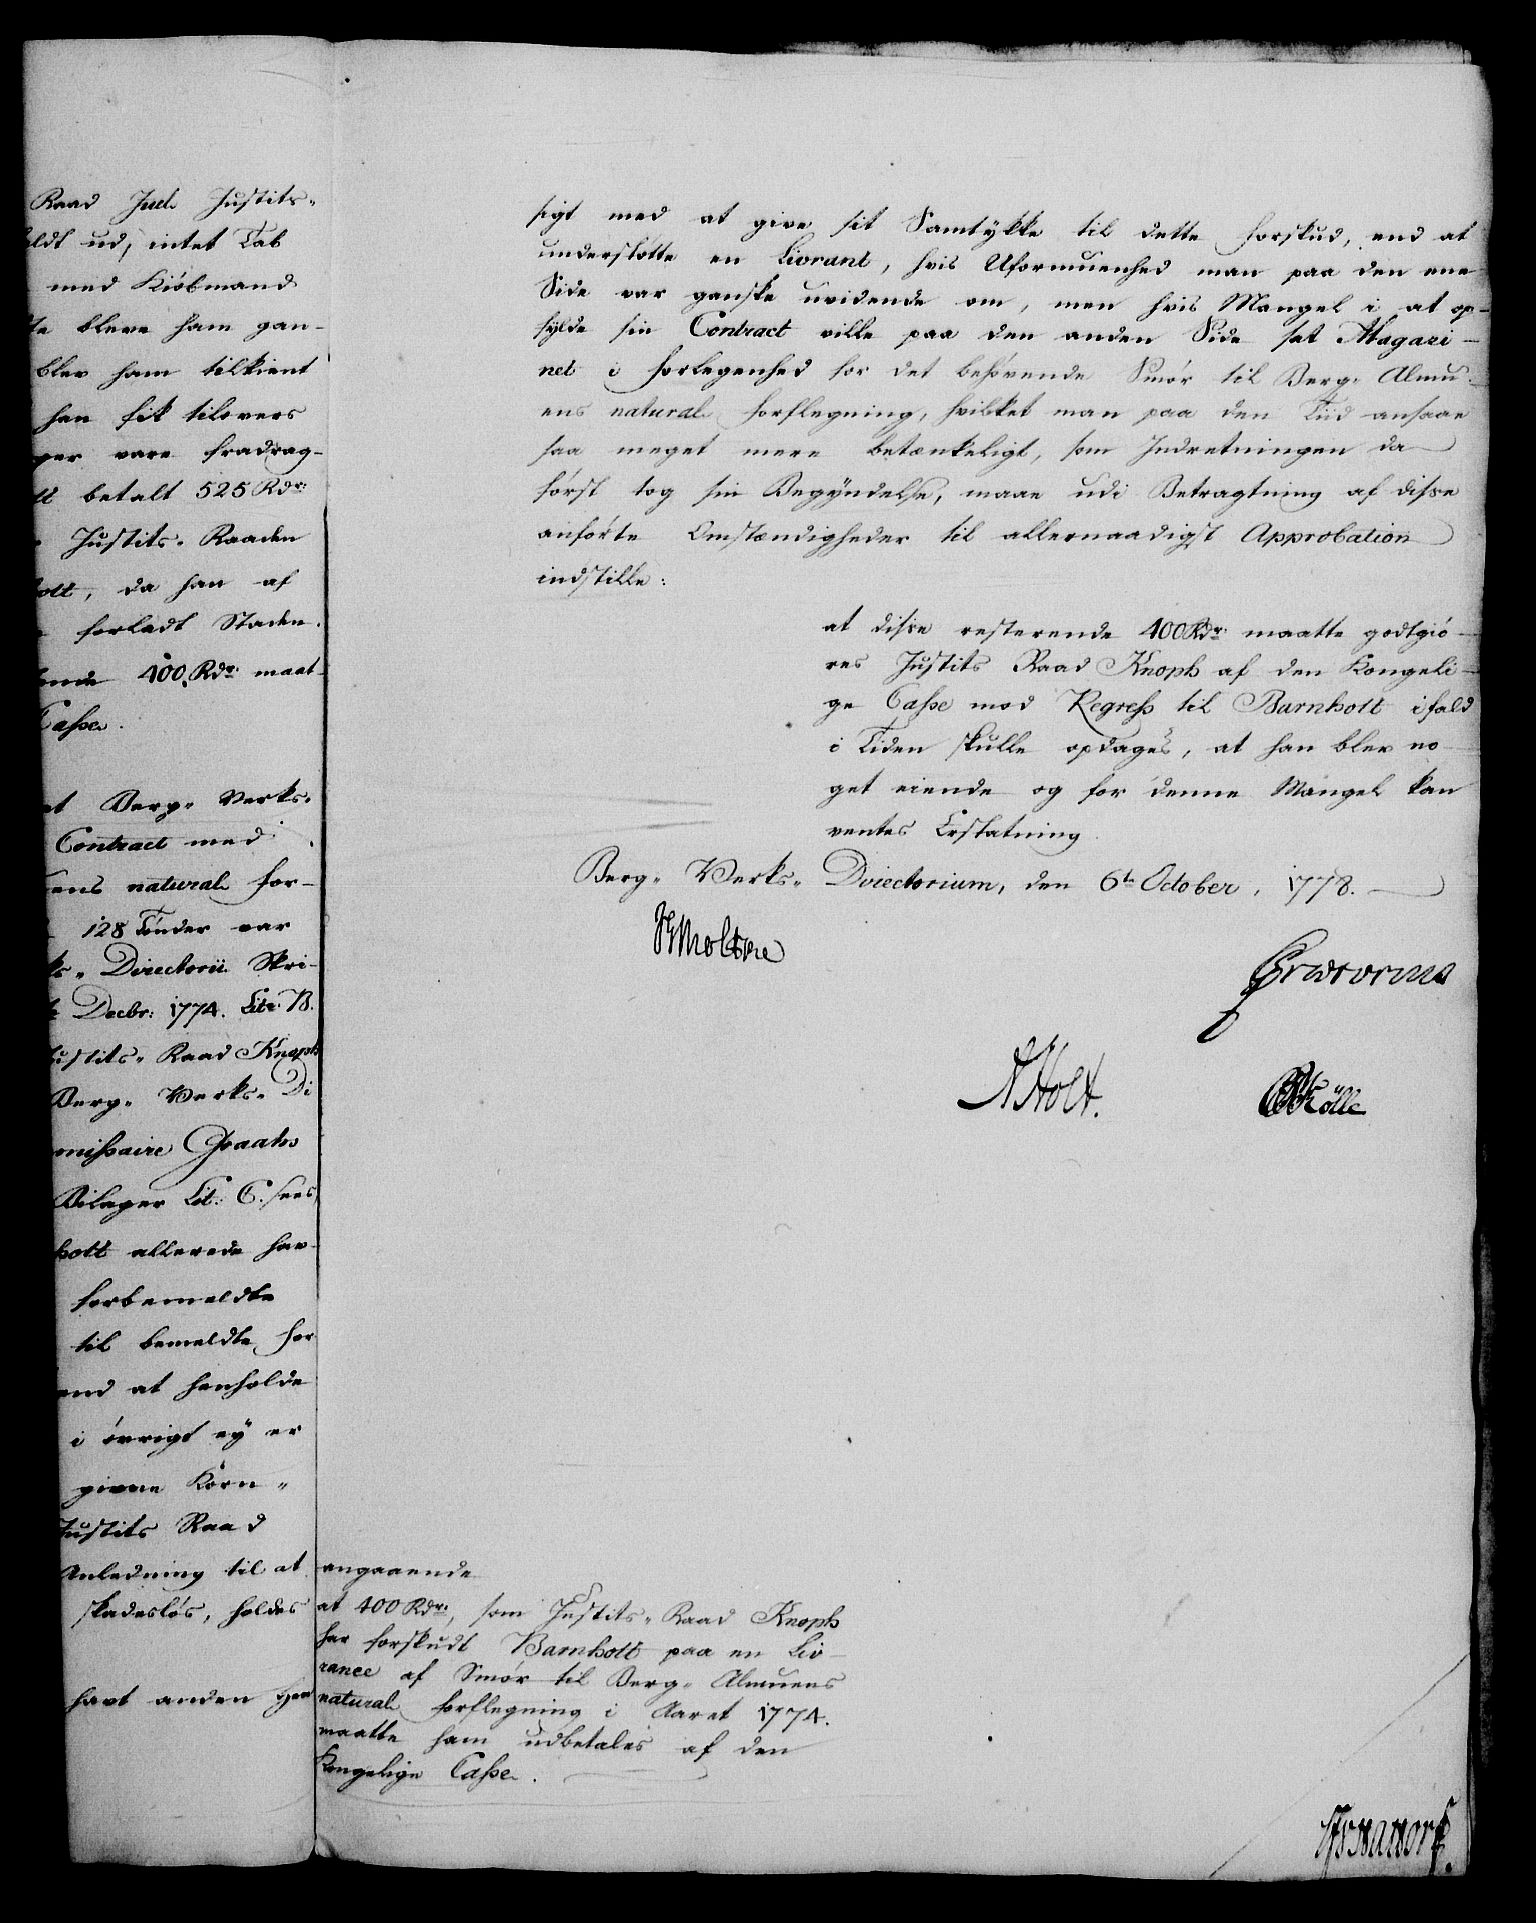 Raad Juel Justits-
ldt ud, intet Tab
med Kiöbmand
te bleve ham gan-
blev ham tilkient
han fik tilovers
ger vare fradrag-
betalt 525 Rdr:
Justits- Raaden
ott, da han af
forladt Staden.
ende 400 Rdr: maat-
Casse.
at Berg- Verks-
Contract med
ens natural for-
128 Tönder var
ks- Directorii Skri-
Decbr: 1774. Litr. B.
ustits- Raad Knoph
Berg- Verks- Di
missaire Graahs
Bilager Lit: C. sees,
hott allerede hav-
forbemeldte
til bemeldte for
end at henholde
i övrigt ey er
givne Korn-
Justits Raad
Anledning til at
skadeslös, holdes
havt anden
sigt med at give sit Samtykke til dette Forskud, end at
understötte en Livrant, hvis Uformuenhed man paa den ene
Side var ganske uvidende om, men hvis Mangel i at op-
fylde sin Contract ville paa den anden Side sat Magazi-
net i Forlegenhed for det behövende Smör til Berg- Almu-
ens natural Forflegning, hvilket man paa den Tiid ansaae
saa meget mere betænkeligt, som Indretningen da
först tog sin Begÿndelse, maae udi Betragtning af disse
anförte Omstændigheder til allernaadigst Approbation
indstille:
at disse resterende 400 Rdr: maatte godtgiö-
res Justits Raad Knoph af den Kongeli-
ge Casse mod Regress til Barnholt ifald
i Tiden skulle opdages, at han blev no-
get eiende og for denne Mangel kan
ventes Erstatning.
Berg- Verks- Directorium, den 6te October, 1778.
Moltke
AHolt.
angaaende
at 400 Rdr:, som Justits- Raad Knoph
har forskudt Barnholt paa en Liv-
rance af Smör til Berg- Almuens
natural Forflegning i Aaret 1774.
maatte ham udbetales af den
Kongelige Casse.